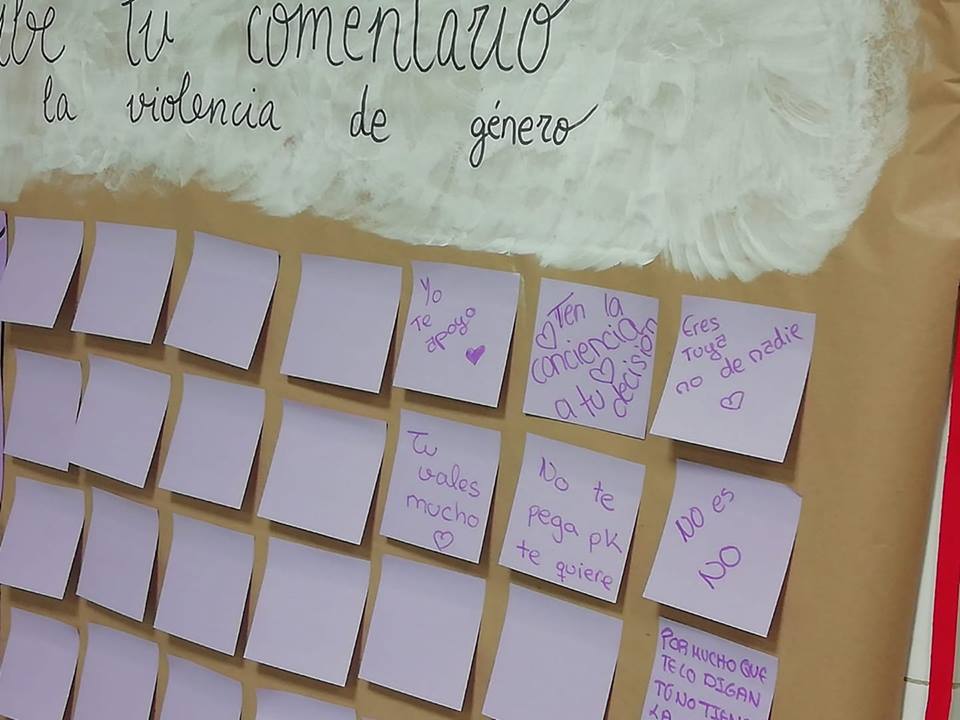 tu comentario
la violencia de género
Yo
te
apoyo
Ten la
conciencia
a tu decisión
Eres
tuya
no de nadie
Tu
vales
mucho
No te
pega pk
te quiere
NO es
NO
POR MUCHO QUE
TE LO DIGAN
TÚ NO
LA